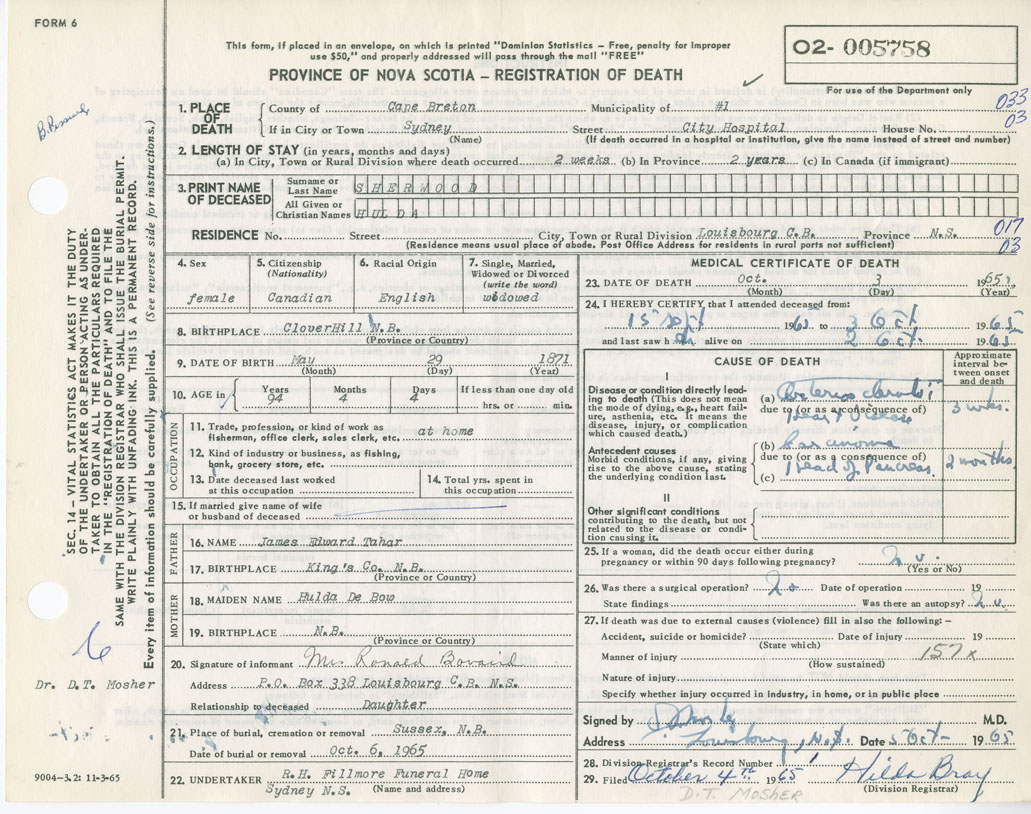 FORM 6
This form, if placed in an envelope, on which is printed "Dominion Statistics – Free, penalty for improper
use $50," and properly addressed will pass through the mail "FREE"
PROVINCE OF NOVA SCOTIA – REGISTRATION OF DEATH
02- 005758
For use of the Department only
033
03
1. PLACE OF DEATH
County of Cape Breton Municipality of #1
If in City or Town Sydney Street City Hospital House No.
(Name) (If death occurred in a hospital or institution, give the name instead of street and number)
2. LENGTH OF STAY (in years, months and days)
(a) In City, Town or Rural Division where death occurred 2 weeks (b) In Province 2 years (c) In Canada (if immigrant)
3. PRINT NAME OF DECEASED
Surname or Last Name SHERWOOD
All Given or Christian Names HULDA
RESIDENCE No. Street City, Town or Rural Division Louisbourg C.B. Province N.S.
(Residence means usual place of abode. Post Office Address for residents in rural parts not sufficient)
017
03
4. Sex
female
5. Citizenship
(Nationality)
Canadian
6. Racial Origin
English
7. Single, Married,
Widowed or Divorced
(write the word)
widowed
8. BIRTHPLACE CloverHill N.B.
(Province or Country)
9. DATE OF BIRTH May 29 1871
(Month) (Day) (Year)
10. AGE in
Years 94
Months 4
Days 4
If less than one day old
hrs. or min.
OCCUPATION
11. Trade, profession, or kind of work as
fisherman, office clerk, sales clerk, etc. at home
12. Kind of industry or business, as fishing,
bank, grocery store, etc.
13. Date deceased last worked
at this occupation
14. Total yrs. spent in
this occupation
15. If married give name of wife
or husband of deceased
FATHER
16. NAME James Edward Tahar
17. BIRTHPLACE King's Co. N.B.
(Province or Country)
MOTHER
18. MAIDEN NAME Hulda De Bow
19. BIRTHPLACE N.B.
(Province or Country)
20. Signature of informant Mrs Ronald
Address P.O. Box 338 Louisbourg C.B. N.S.
Relationship to deceased Daughter
21. Place of burial, cremation or removal Sussex, N.B.
Date of burial or removal Oct. 6, 1965
22. UNDERTAKER R.H. Fillmore Funeral Home
Sydney N.S. (Name and address)
MEDICAL CERTIFICATE OF DEATH
23. DATE OF DEATH Oct. 3 1965
(Month) (Day) (Year)
24. I HEREBY CERTIFY, that I attended deceased from:
15 Sept 1965 to 3 Oct 1965
and last saw her alive on 2 Oct 1965
CAUSE OF DEATH
Approximate
interval be-
tween onset
and death
I
Disease or condition directly lead-
ing to death (This does not mean
the mode of dying, e.g., heart fail-
ure, asthenia, etc. It means the
disease, injury, or complication
which caused death.)
(a) Arteriosclerotic
due to (or as a consequence of)
Heart Disease 3 wks.
Antecedent causes
Morbid conditions, if any, giving
rise to the above cause, stating
the underlying condition last.
(b) Carcinoma
due to (or as a consequence of)
(c) Head of Pancreas 2 months
II
Other significant conditions
contributing to the death, but not
related to the disease or condi-
tion causing it.
25. If a woman, did the death occur either during
pregnancy or within 90 days following pregnancy? no
(Yes or No)
26. Was there a surgical operation? no Date of operation 19
State findings Was there an autopsy? no
27. If death was due to external causes (violence) fill in also the following: –
Accident, suicide or homicide? Date of injury 19
(State which)
Manner of injury 157x
(How sustained)
Nature of injury
Specify whether injury occurred in industry, in home, or in public place
Signed by M.D.
Address Louisbourg, N.S. Date 5 Oct 1965
28. Division Registrar's Record Number
29. Filed October 4th 1965 Hilda Bray
(Division Registrar)
D.T. MOSHER
SEC. 14 – VITAL STATISTICS ACT MAKES IT THE DUTY
OF THE UNDERTAKER OR PERSON ACTING AS UNDER-
TAKER TO OBTAIN ALL THE PARTICULARS REQUIRED
IN THE "REGISTRATION OF DEATH" AND TO FILE THE
SAME WITH THE DIVISION REGISTRAR WHO SHALL ISSUE THE BURIAL PERMIT.
WRITE PLAINLY WITH UNFADING INK. THIS IS A PERMANENT RECORD.
Every item of information should be carefully supplied. (See reverse side for instructions.)
6
Dr. D.T. Mosher
9004-3.2: 11-3-65